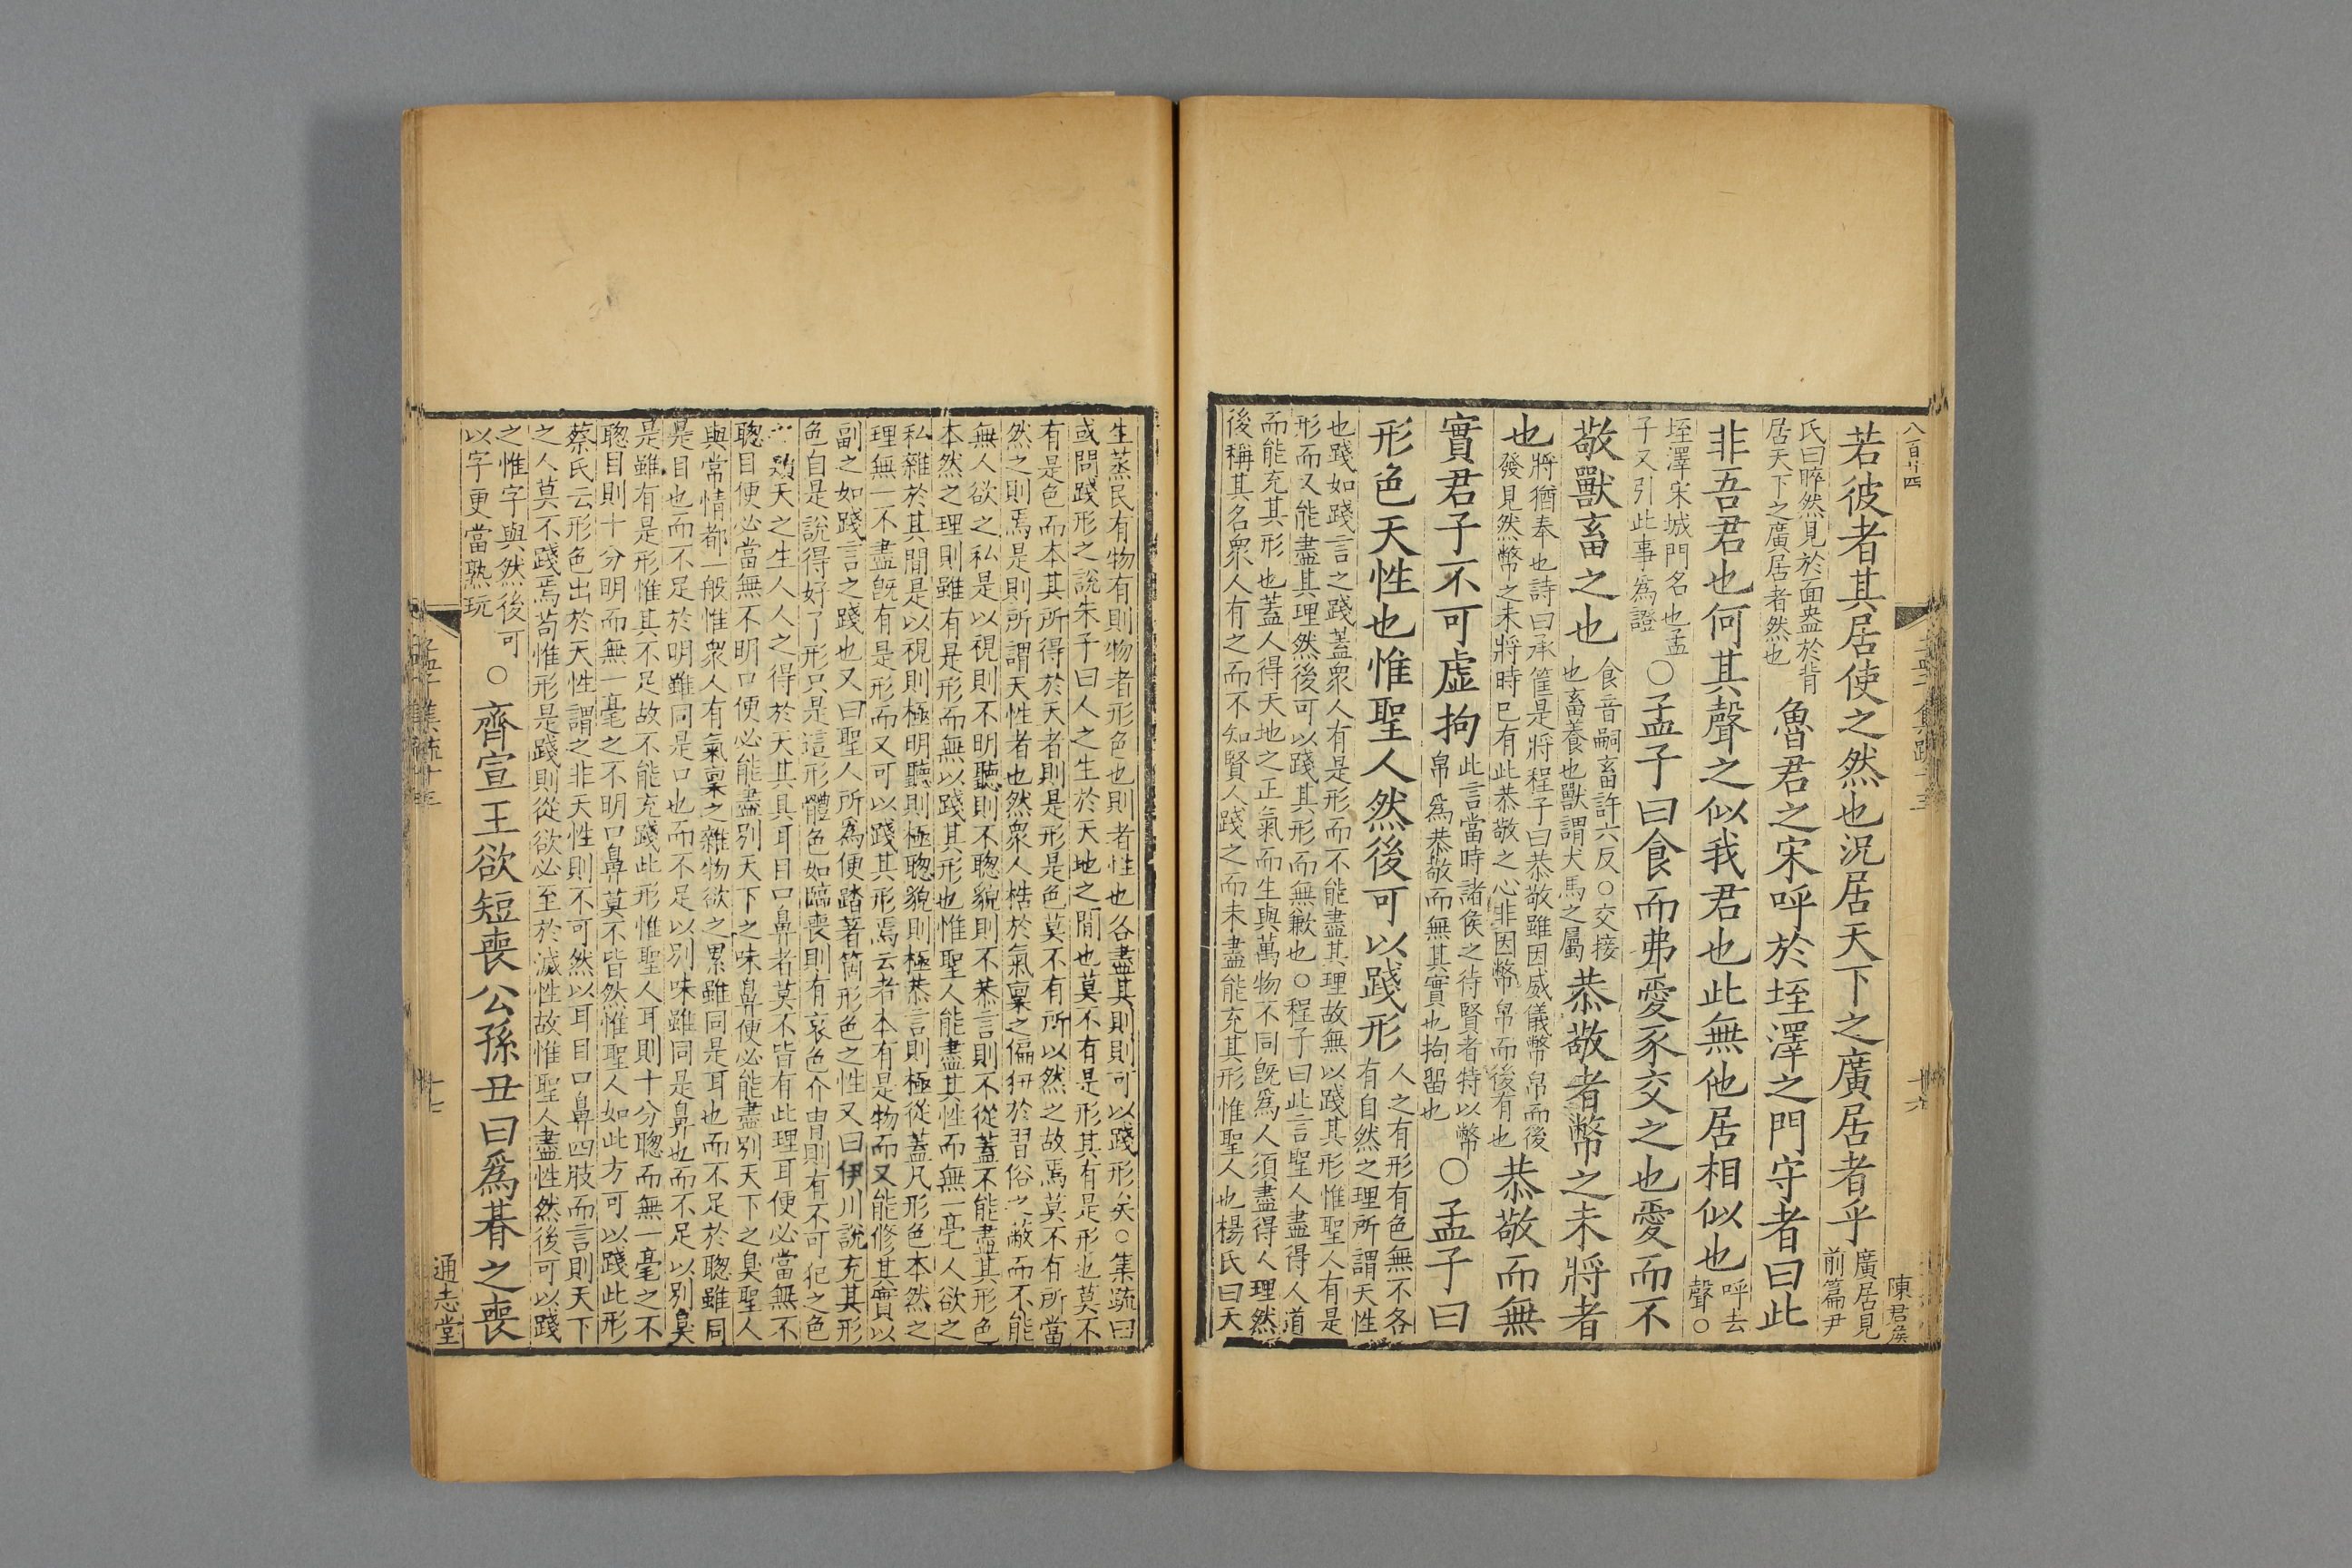 八百廿四
陳君侯
若彼者其居使之然也況居天下之廣居者乎廣居見
前篇尹
氏曰睟然見於面盎於背
居天下之廣居者然也魯君之宋呼於垤澤之門守者曰此
非吾君也何其聲之似我君也此無他居相似也呼去
聲○
垤澤宋城門名也孟
子又引此事爲證○孟子曰食而弗愛豕交之也愛而不
敬獸畜之也食音嗣畜許六反○交接
也畜養也獸謂犬馬之屬恭敬者幣之未將者
也將猶奉也詩曰承筐是將程子曰恭敬雖因威儀幣帛而後
發見然幣之未將時已有此恭敬之心非因幣帛而後有也恭敬而無
實君子不可虛拘此言當時諸侯之待賢者特以幣
帛爲恭敬而無其實也拘留也○孟子曰
形色天性也惟聖人然後可以踐形人之有形有色無不各
有自然之理所謂天性
也踐如踐言之踐蓋衆人有是形而不能盡其理故無以踐其形惟聖人有是
形而又能盡其理然後可以踐其形而無歉也○程子曰此言聖人盡得人道
而能充其形也蓋人得天地之正氣而生與萬物不同旣爲人須盡得人理然
後稱其名衆人有之而不知賢人踐之而未盡能充其形惟聖人也楊氏曰天
生蒸民有物有則物者形色也則者性也各盡其則則可以踐形矣○集疏曰
或問踐形之說朱子曰人之生於天地之閒也莫不有是形其有是形也莫不
有是色而本其所得於天者則是形是色莫不有所以然之故焉莫不有所當
然之則焉是則所謂天性者也然衆人梏於氣稟之偏狃於習俗之蔽而不能
無人欲之私是以視則不明聽則不聰貌則不恭言則不從蓋不能盡其形色
本然之理則雖有是形而無以踐其形也惟聖人能盡其性而無一毫人欲之
私雜於其閒是以視則極明聽則極聰貌則極恭言則極從蓋凡形色本然之
理無一不盡旣有是形而又可以踐其形焉云者本有是物而又能修其實以
副之如踐言之踐也又曰聖人所爲便踏著箇形色之性又曰伊川說充其形
色自是說得好了形只是這形體色如臨喪則有哀色介冑則有不可犯之色
之類天之生人人之得於天其具耳目口鼻者莫不皆有此理耳便必當無不
聰目便必當無不明口便必能盡別天下之味鼻便必能盡別天下之臭聖人
與常情都一般惟衆人有氣稟之雜物欲之累雖同是耳也而不足於聰雖同
是目也而不足於明雖同是口也而不足以別味雖同是鼻也而不足以別臭
是雖有是形惟其不足故不能充踐此形惟聖人耳則十分聰而無一毫之不
聰目則十分明而無一毫之不明口鼻莫不皆然惟聖人如此方可以踐此形
蔡氏云形色出於天性謂之非天性則不可然以耳目口鼻四肢而言則天下
之人莫不踐焉苟惟形是踐則從欲必至於滅性故惟聖人盡性然後可以踐
之惟字與然後可
以字更當熟玩○齊宣王欲短喪公孫丑曰爲朞之喪
通志堂